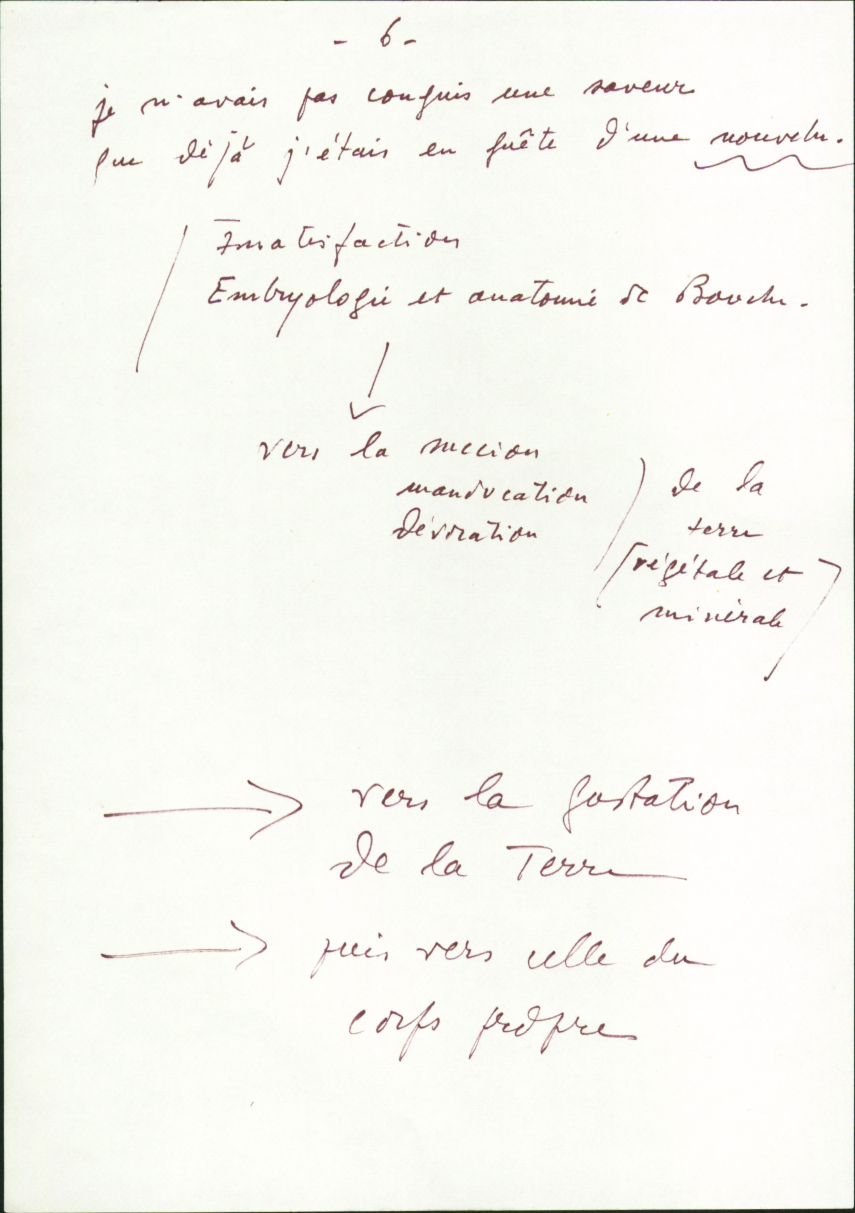 - 6 -
je n'avais pas conquis une saveur
que déjà j'étais en quête d'une nouvelle.
Insatisfaction
Embryologie et anatomie de Bouche.
vers la succion
manducation
dévoration
de la
terre
(végétale et
minérale)
→ vers la gustation
de la Terre
→ puis vers celle du
corps propre